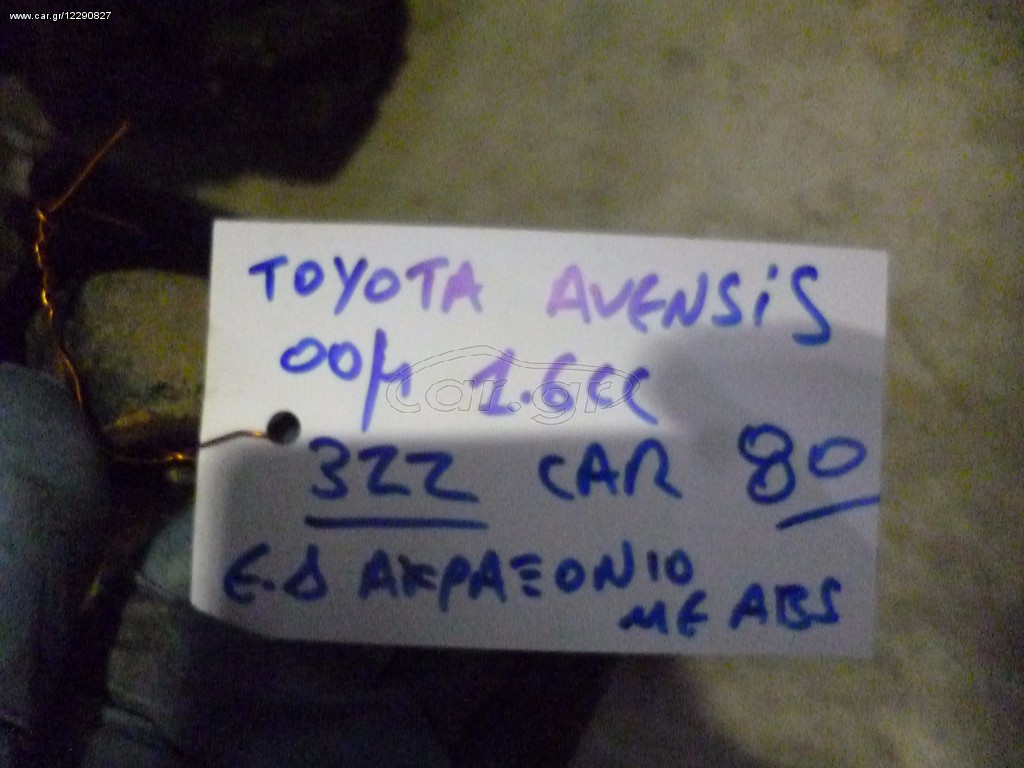 www.car.gr/12290827
TOYOTA AVENSiS
00μ 1.6cc
car.gr
322 CAR 80
Ε.Δ ΑΚΡΑΞΟΝΙΟ
ΜΕ ABS